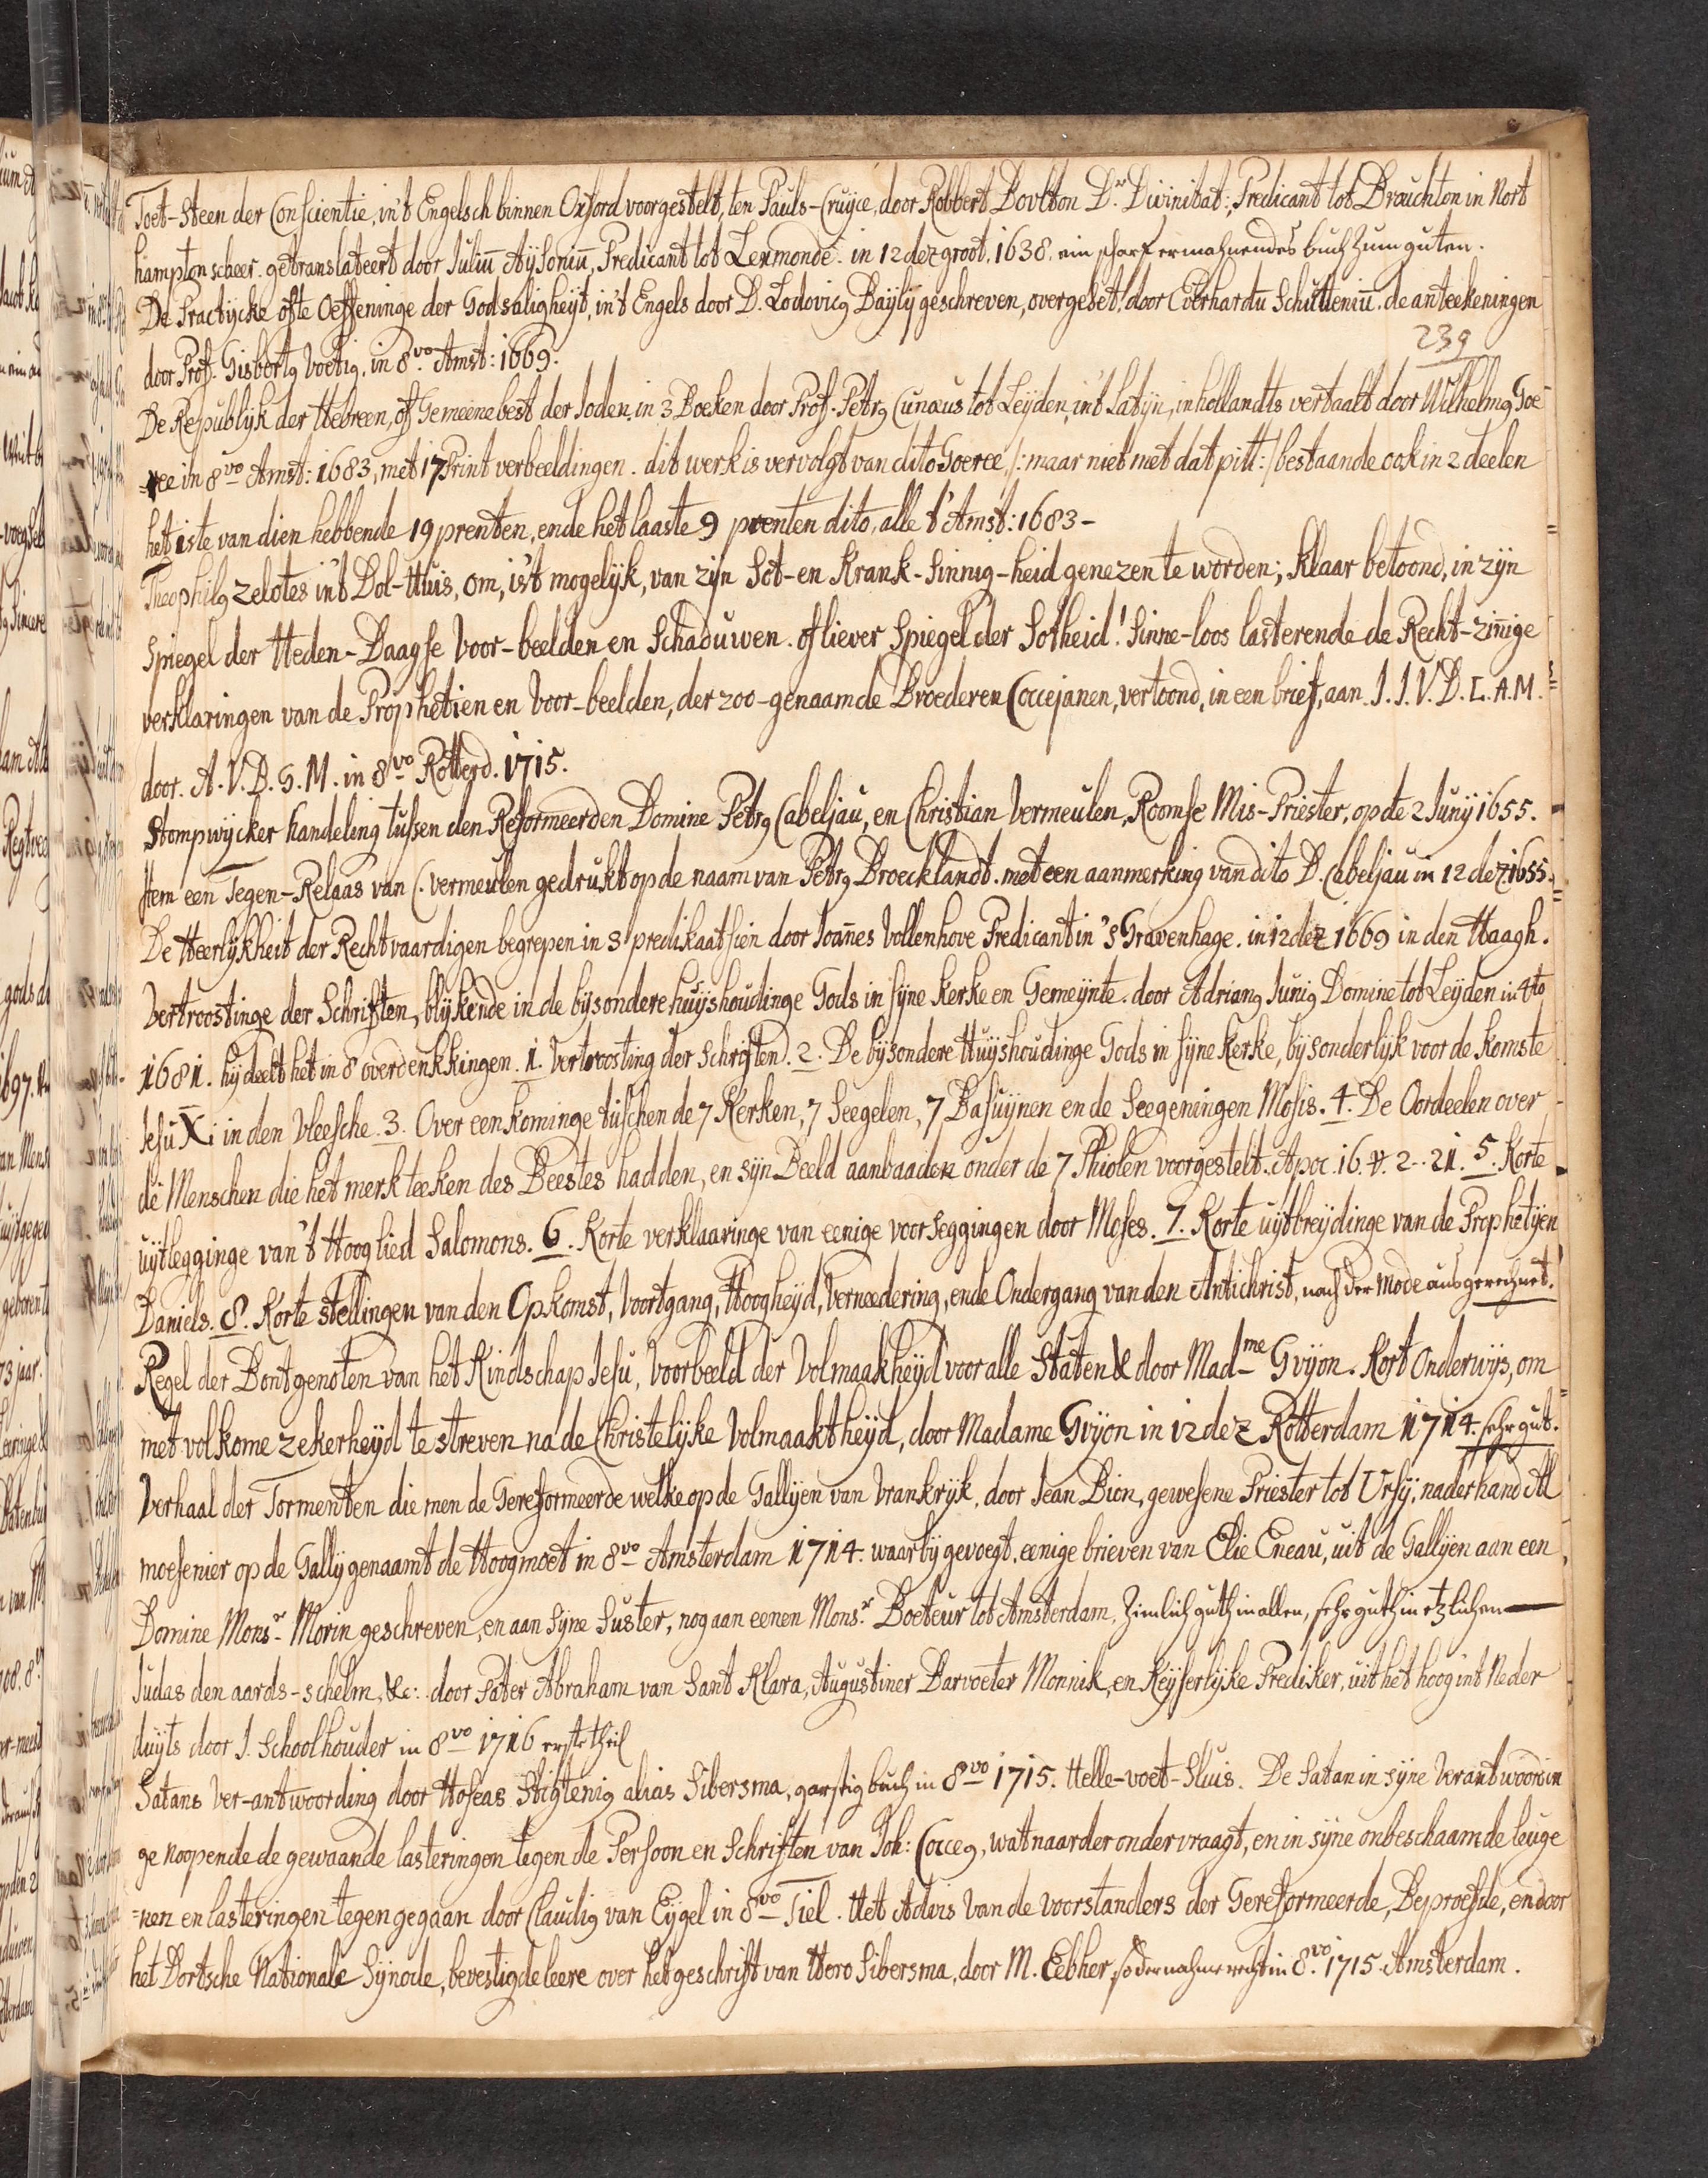 Toet-Steen der Conscientie, in't Engelsch binnen Oxford voorgestelt, ten Pauls-Cruyce, door Robbert Boulton Dr. Divinitat:, Predicant tot Brouchton in Nort
hampton scheer. getranslateert door Juliū Aysoniū, Predicant tot Lexmonde. in 12dez groot. 1638. ein scharf ermahnendes buch zum guten.
De Practycke ofte Oeffeninge der Godsaligheyt, in't Engels door D. Lodovicꝰ Bayly geschreven, overgeset door Everhardū Schutteniū. de anteekeningen
239
door Prof. Gisbertꝰ Voetiꝰ, in 8vo. Amst: 1669.
De Republyk der Hebreen, of Gemeenebest der Joden, in 3 Boeken door Prof. Petrꝰ Cunæus tot Leyden, in't Latyn, in hollandts vertaalt door Wilhelmꝰ Goe
=ree in 8vo Amst: 1683, met 17 Print verbeeldingen. dit werk is vervolgt van dito Goeree, /: maar niet met dat pitt:/ bestaande ook in 2 deelen
het 1ste van dien hebbende 19 prenten, ende het laaste 9 prenten dito, alle t'Amst: 1683-
Theophilꝰ zelotes in't Dol-Huis, om, is't mogelyk, van zyn Sot- en Krank-Sinnig-heid genezen te worden; klaar betoond, in zyn
Spiegel der Heden-Daagse Voor-beelden en Schaduwen. of liever Spiegel der Sotheid! Sinne-loos lasterende de Recht-zin̄ige
verklaringen van de Prophetien en Voor-beelden, der zoo-genaamde Broederen Coccejanen, vertoond, in een brief, aan J. J. V. D. L. A. M.
door. A. V. D. G. M. in 8vo Rotterd. 1715.
Stompwycker handeling tussen den Reformeerden Domine Petrꝰ Cabeljau, en Christian Vermeulen, Roomse Mis-Priester, op de 2 Juny 1655.
Item een Tegen-Relaas van C. vermeulen gedrukt op de naam van Petrꝰ Broecklandt. met een aanmerking van dito D. Cabeljau in 12 dez 1655.
De Heerlykheit der Rechtvaardigen begrepen in 8 predikaatsien door Joan̄es Vollenhove Predicant in 's Gravenhage. in 12 dez 1669 in den Haagh.
Vertroostinge der Schriften, blykende in de bysondere huyshoudinge Gods in syne kerke en Gemeynte. door Adrianꝰ Juniꝰ Domine tot Leyden in 4to
1681. hy deelt het in 8 overdenkkingen. 1. Vertroosting der schriften. 2. De bysondere Huyshoudinge Gods in syne kerke, bysonderlyk voor de komste
Jesu Xi in den Vleesche. 3. Over een kominge tusschen de 7 Kerken, 7 Seegelen, 7 Basuynen en de Seegeningen Mosis. 4. De Oordeelen over
de Menschen die het merkteeken des Beestes hadden, en syn Beeld aanbaaden onder de 7 Phiolen voorgestelt. Apoc. 16. v. 2..21. 5. Korte
uytlegginge van't Hooglied Salomons. 6. Korte verklaaringe van eenige voorseggingen door Moses. 7. Korte uytbreydinge van de Prophetyen
Daniels. 8. Korte stellingen van den Opkomst, Voortgang, Hoogheyd, Vernedering, ende Ondergang van den Antichrist, nach der mode ausgerechnet!
Regel der Bontgenoten van het Kindschap Jesu, Voorbeeld der Volmaakheyd voor alle Staten & door Madme Gvyon. Kort Onderwys, om
met volkome zekerheyd te streven na de Christelyke Volmaaktheyd, door Madame Gvyon in 12 dez Rotterdam 1714. sehr gut.
Verhaal der Tormenten die men de Gereformeerde welke op de Gallyen van Vrankryk, door Jean Bion, gewesene Priester tot Ursy, naderhand Al
moesenier op de Gally genaamt de Hoogmoet in 8vo Amsterdam 1714. waarby gevoegt. eenige brieven van Elie Eneau, uit de Gallyen aan een
Domine Monsr. Morin geschreven, en aan syne Suster, nog aan eenen Monsr. Boeteur tot Amsterdam. Zimlich guth in allen, sehr guth in etzlichen
Judas den aards-schelm, &c: door Pater Abraham van Sant Klara, Augustiner Barvoeter Monnik, en Keyserlyke Prediker, uit het hoog int Neder
duyts door J. Schoolhouder in 8vo 1716 erste theil
Satans Ver-antwoording door Hoseas Stigteniꝰ alias Sibersma, garstig buch in 8vo 1715. Helle-voet-Sluis. De Satan in syne Verantwoordin
ge noopende de gewaande lasteringen tegen de Persoon en Schriften van Joh: Cocceꝰ, wat naarder ondervraagt, en in syne onbeschaamde leuge
=nen en lasteringen tegengegaan door Claudiꝰ van Eygel in 8vo Tiel. Het Advis van de voorstanders der Gereformeerde, Beproefde, en door
het Dortsche Nationale Synode, bevestigde leere over het geschrift van Hero Sibersma, door M. Eebher, so der nahme recht in 8vo. 1715. Amsterdam.